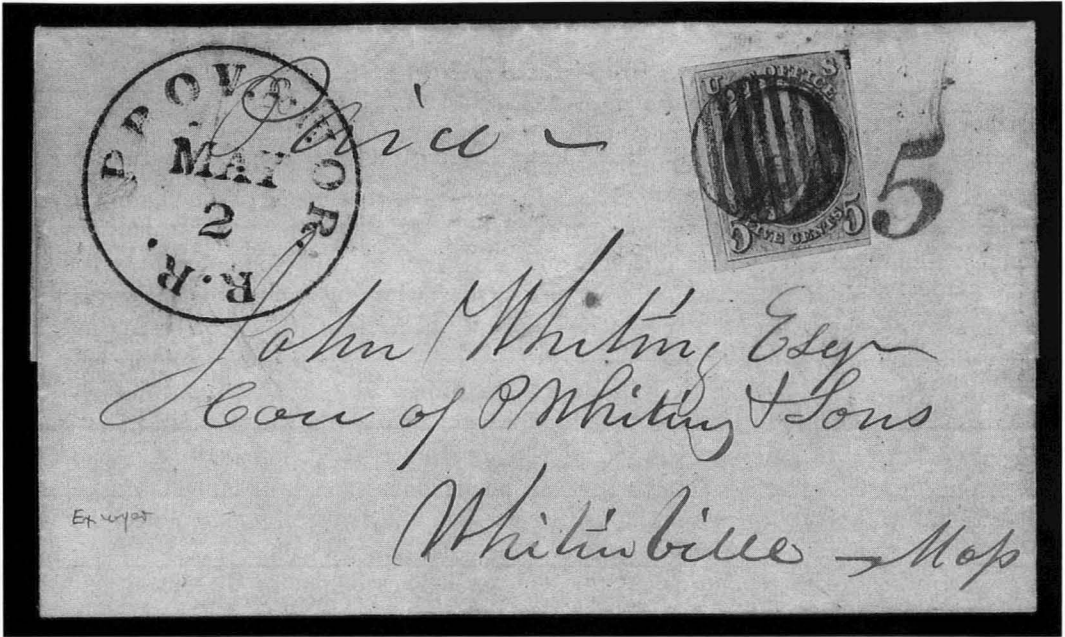 PROV. & WOR.
MAY
2
R.R.
U S
POST OFFICE
5 FIVE CENTS 5
5
John Whiting Esqr
Care of P Whiting & Sons
Whitinville – Mass